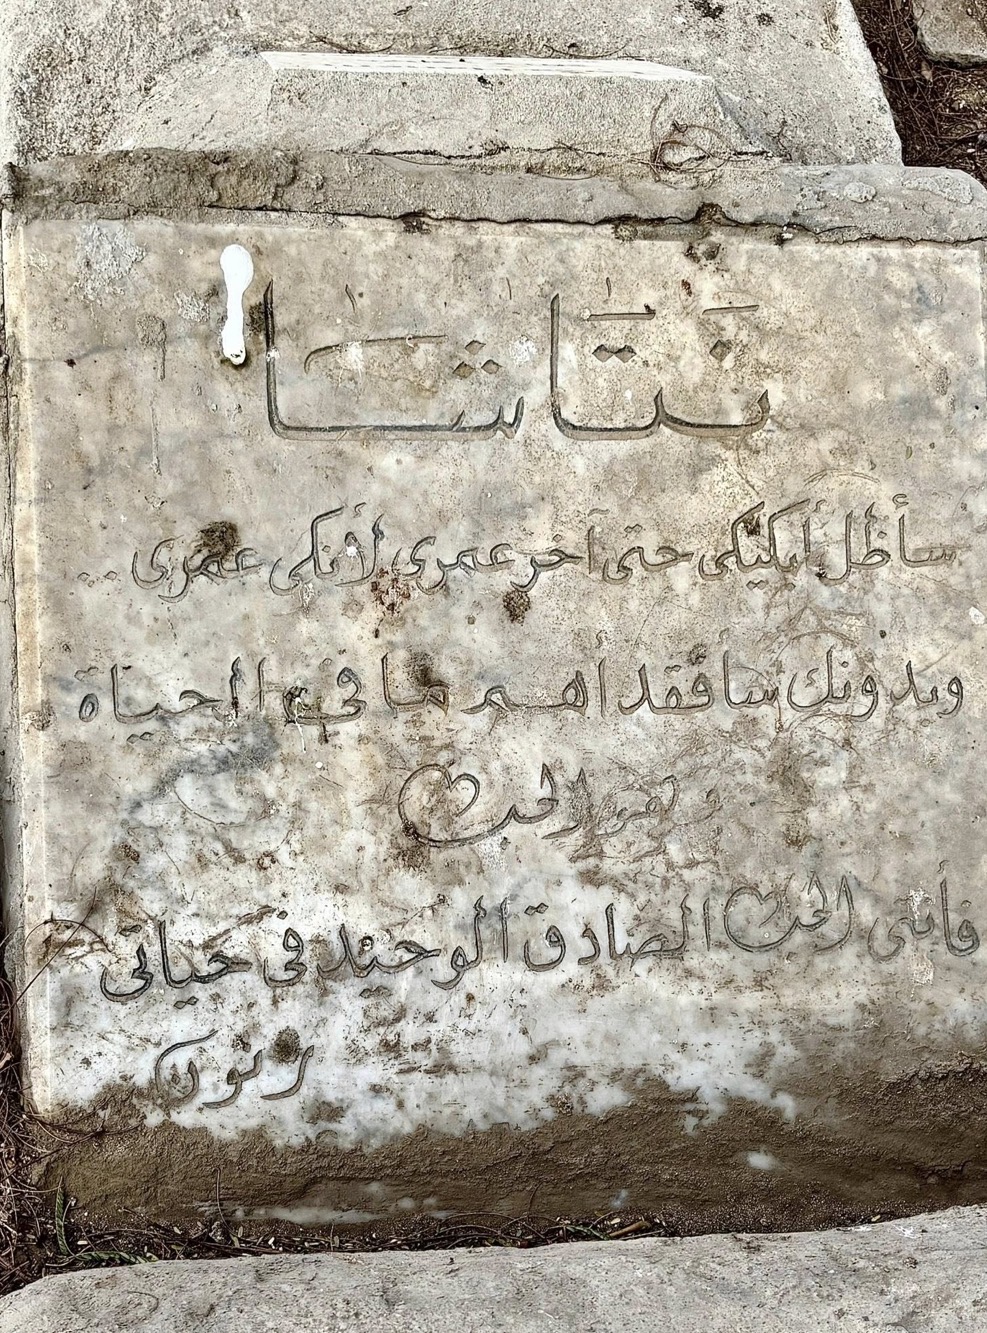 نتاشا
سأظل أبكيكي حتى آخر عمري لأنكي عمري
وبدونك سأفقد أهم ما في الحياة
وهو الحب
فأنتي الحب الصادق الوحيد في حياتي
زيزون